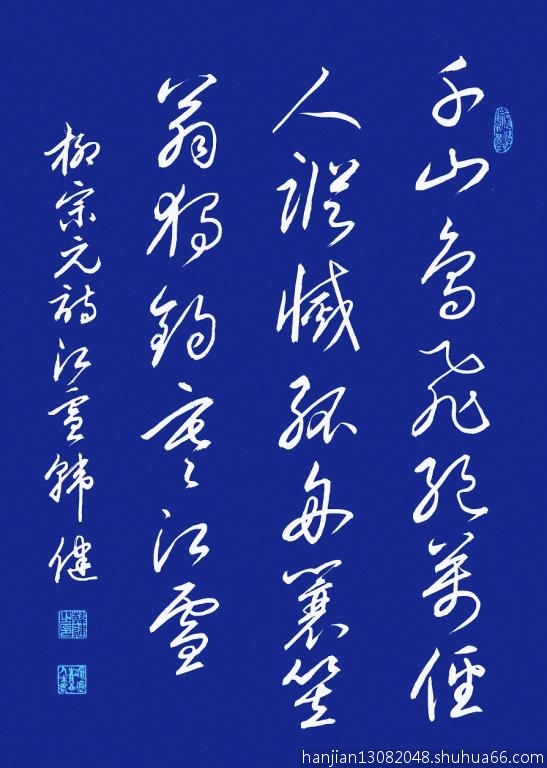 千山鳥飛絕萬徑
人蹤滅孤舟蓑笠
翁獨釣寒江雪
柳宗元詩江雪韓健
hanjian13082048.shuhua66.com